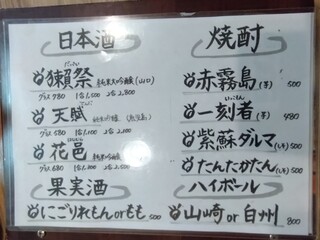 日本酒
だっさい
獺祭 純米大吟醸 (山口)
グラス 980 1合 1,500 2合 2,800
てんぶ
天賦 純米吟醸 (鹿児島)
グラス 580 1合 1,100 2合 2,000
花邑 純米吟醸
グラス 680
果実酒
にごりれもん or もも 500
焼酎
赤霧島 (芋) 500
いっこもん
一刻者 (芋) 480
紫蘇ダルマ (しそ) 500
たんたかたん (しそ) 500
ハイボール
山崎 or 白州 800